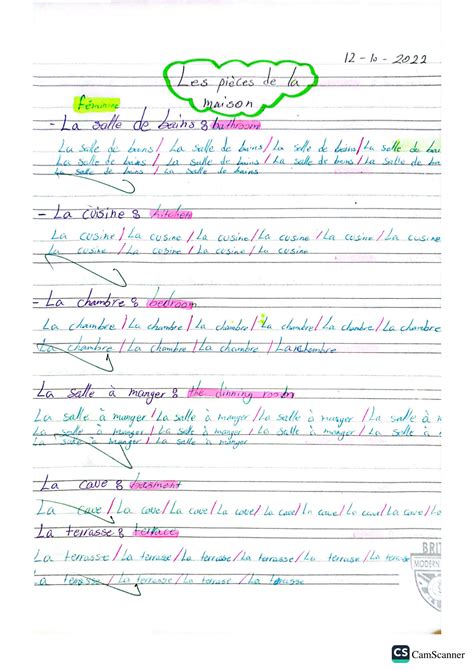 12-10-2022
Les pièces de la
maison
féminine
- La salle de bains : bathroom
La salle de bains / La salle de bains / La salle de bains / La salle de bai
La salle de bains / La salle de bains / La salle de bains / La salle de ba
La salle de bains / La salle de bains
- La cuisine : kitchen
La cuisine / La cuisine / La cuisine / La cuisine / La cuisine / La cuisine
La cuisine / La cuisine / La cuisine / La cuisine
- La chambre : bedroom
La chambre / La chambre / La chambre / La chambre / La chambre / La chambre
La chambre / La chambre / La chambre / La chambre
La salle à manger : the dinning room
La salle à manger / La salle à manger / La salle à manger / La salle à m
La salle à manger / La salle à manger / La salle à manger / La salle à
La salle à manger / La salle à manger
La cave : basment
La cave / La cave / La cave / La cave / La cave / La cave / La cave / La cave / La
La terrasse : terrace
La terrasse / La terrasse / La terrasse / La terrasse / La terras
La terrasse / La terrasse / La terrasse / La terrasse
BRIT
MODERN
CS CamScanner